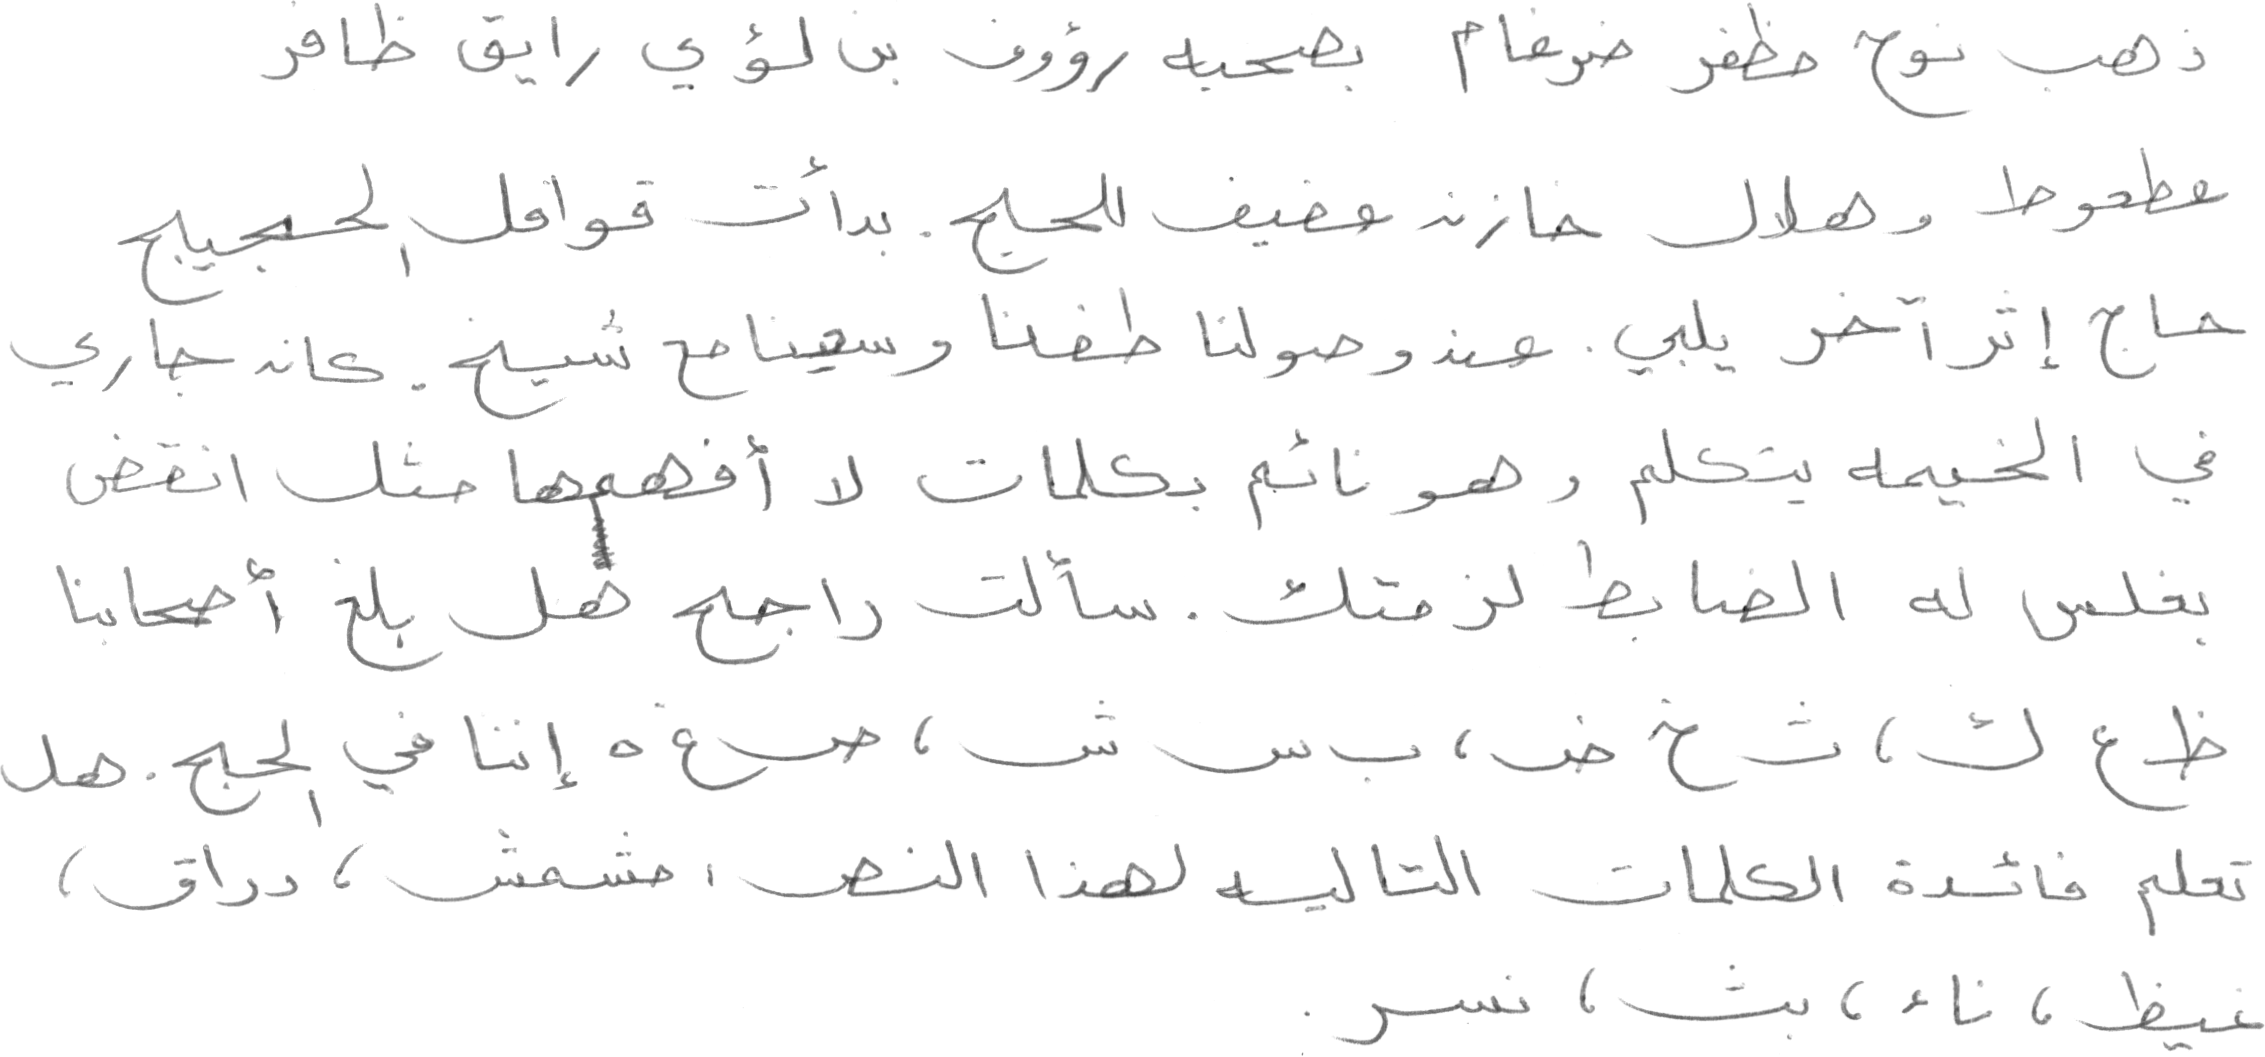 ذهب نوح مظفر ضرغام بصحبه رؤوف بن لؤي رايق ظافر
عطعوط وهلال خازن عفيف للحج. بدأت قوافل الحجيج
حاج إثر آخر يلبي. عند وصولنا طفنا وسعينا مع شيخ. كان جاري
في الخيمه يتكلم وهو نائم بكلمات لا أفهمها مثل انقض
بغلس له الضابط لزمتك. سألت راجح هل بلغ أصحابنا
ظ ع ك، ث خ ض، ب س ش، ص غ ه إننا في الحج. هل
تعلم فائدة الكلمات التاليه لهذا النص، مشمش، دراق،
غيظ، ناء، بث، نسر.